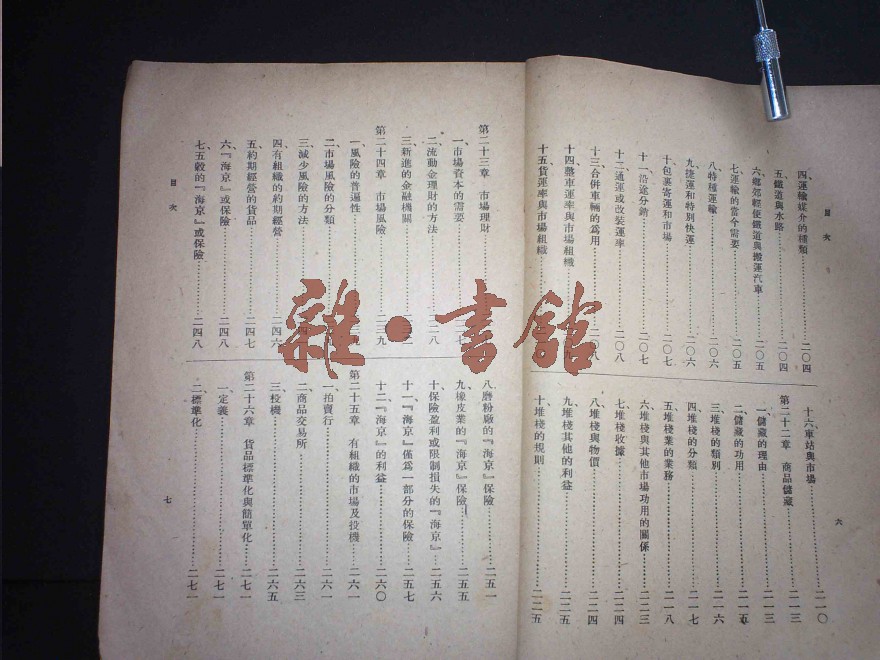 目次
四、運輸媒介的種類……二〇四
五、鐵道與水路……二〇四
六、鄉郊輕便鐵道與搬運汽車……二〇五
七、運輸的當今需要……二〇五
八、特種運輸……二〇六
九、捷運和特別快運……二〇六
十、包裹寄運和市場……二〇七
十一、沿途分銷……二〇七
十二、通運或改裝運率……二〇八
十三、合併車輛的爲用……二〇八
十四、整車運率與市場組織
十五、貨運率與市場組織
十六、車站與市場……二一〇
第二十二章 商品儲藏……二一三
一、儲藏的理由……二一三
二、儲藏的功用……二一五
三、堆棧的類別……二一六
四、堆棧的分類……二一七
五、堆棧業的業務……二一八
六、堆棧與其他市場功用的關係……二二三
七、堆棧收據……二二四
八、堆棧與物價……二二四
九、堆棧其他的利益……二二五
十、堆棧的規則……二二五
六
第二十三章 市場理財
一、市場資本的需要
二、流動金理財的方法……二二八
三、新進的金融機關
第二十四章 市場風險
一、風險的普遍性
二、市場風險的分類
三、減少風險的方法
四、有組織的約期經營……二四六
五、約期經營的貨品……二四七
六、『海京』或保險……二四八
七、五穀的『海京』或保險……二四八
目次
八、磨粉廠的『海京』保險……二五一
九、橡皮業的『海京』保險……二五五
十、保險盈利或限制損失的『海京』……二五六
十一、『海京』僅爲一部分的保險……二五七
十二、『海京』的利益……二六〇
第二十五章 有組織的市場及投機……二六一
一、拍賣行……二六一
二、商品交易所……二六三
三、投機……二六五
第二十六章 貨品標準化與簡單化……二七一
一、定義……二七一
二、標準化……二七一
七
雜·書館